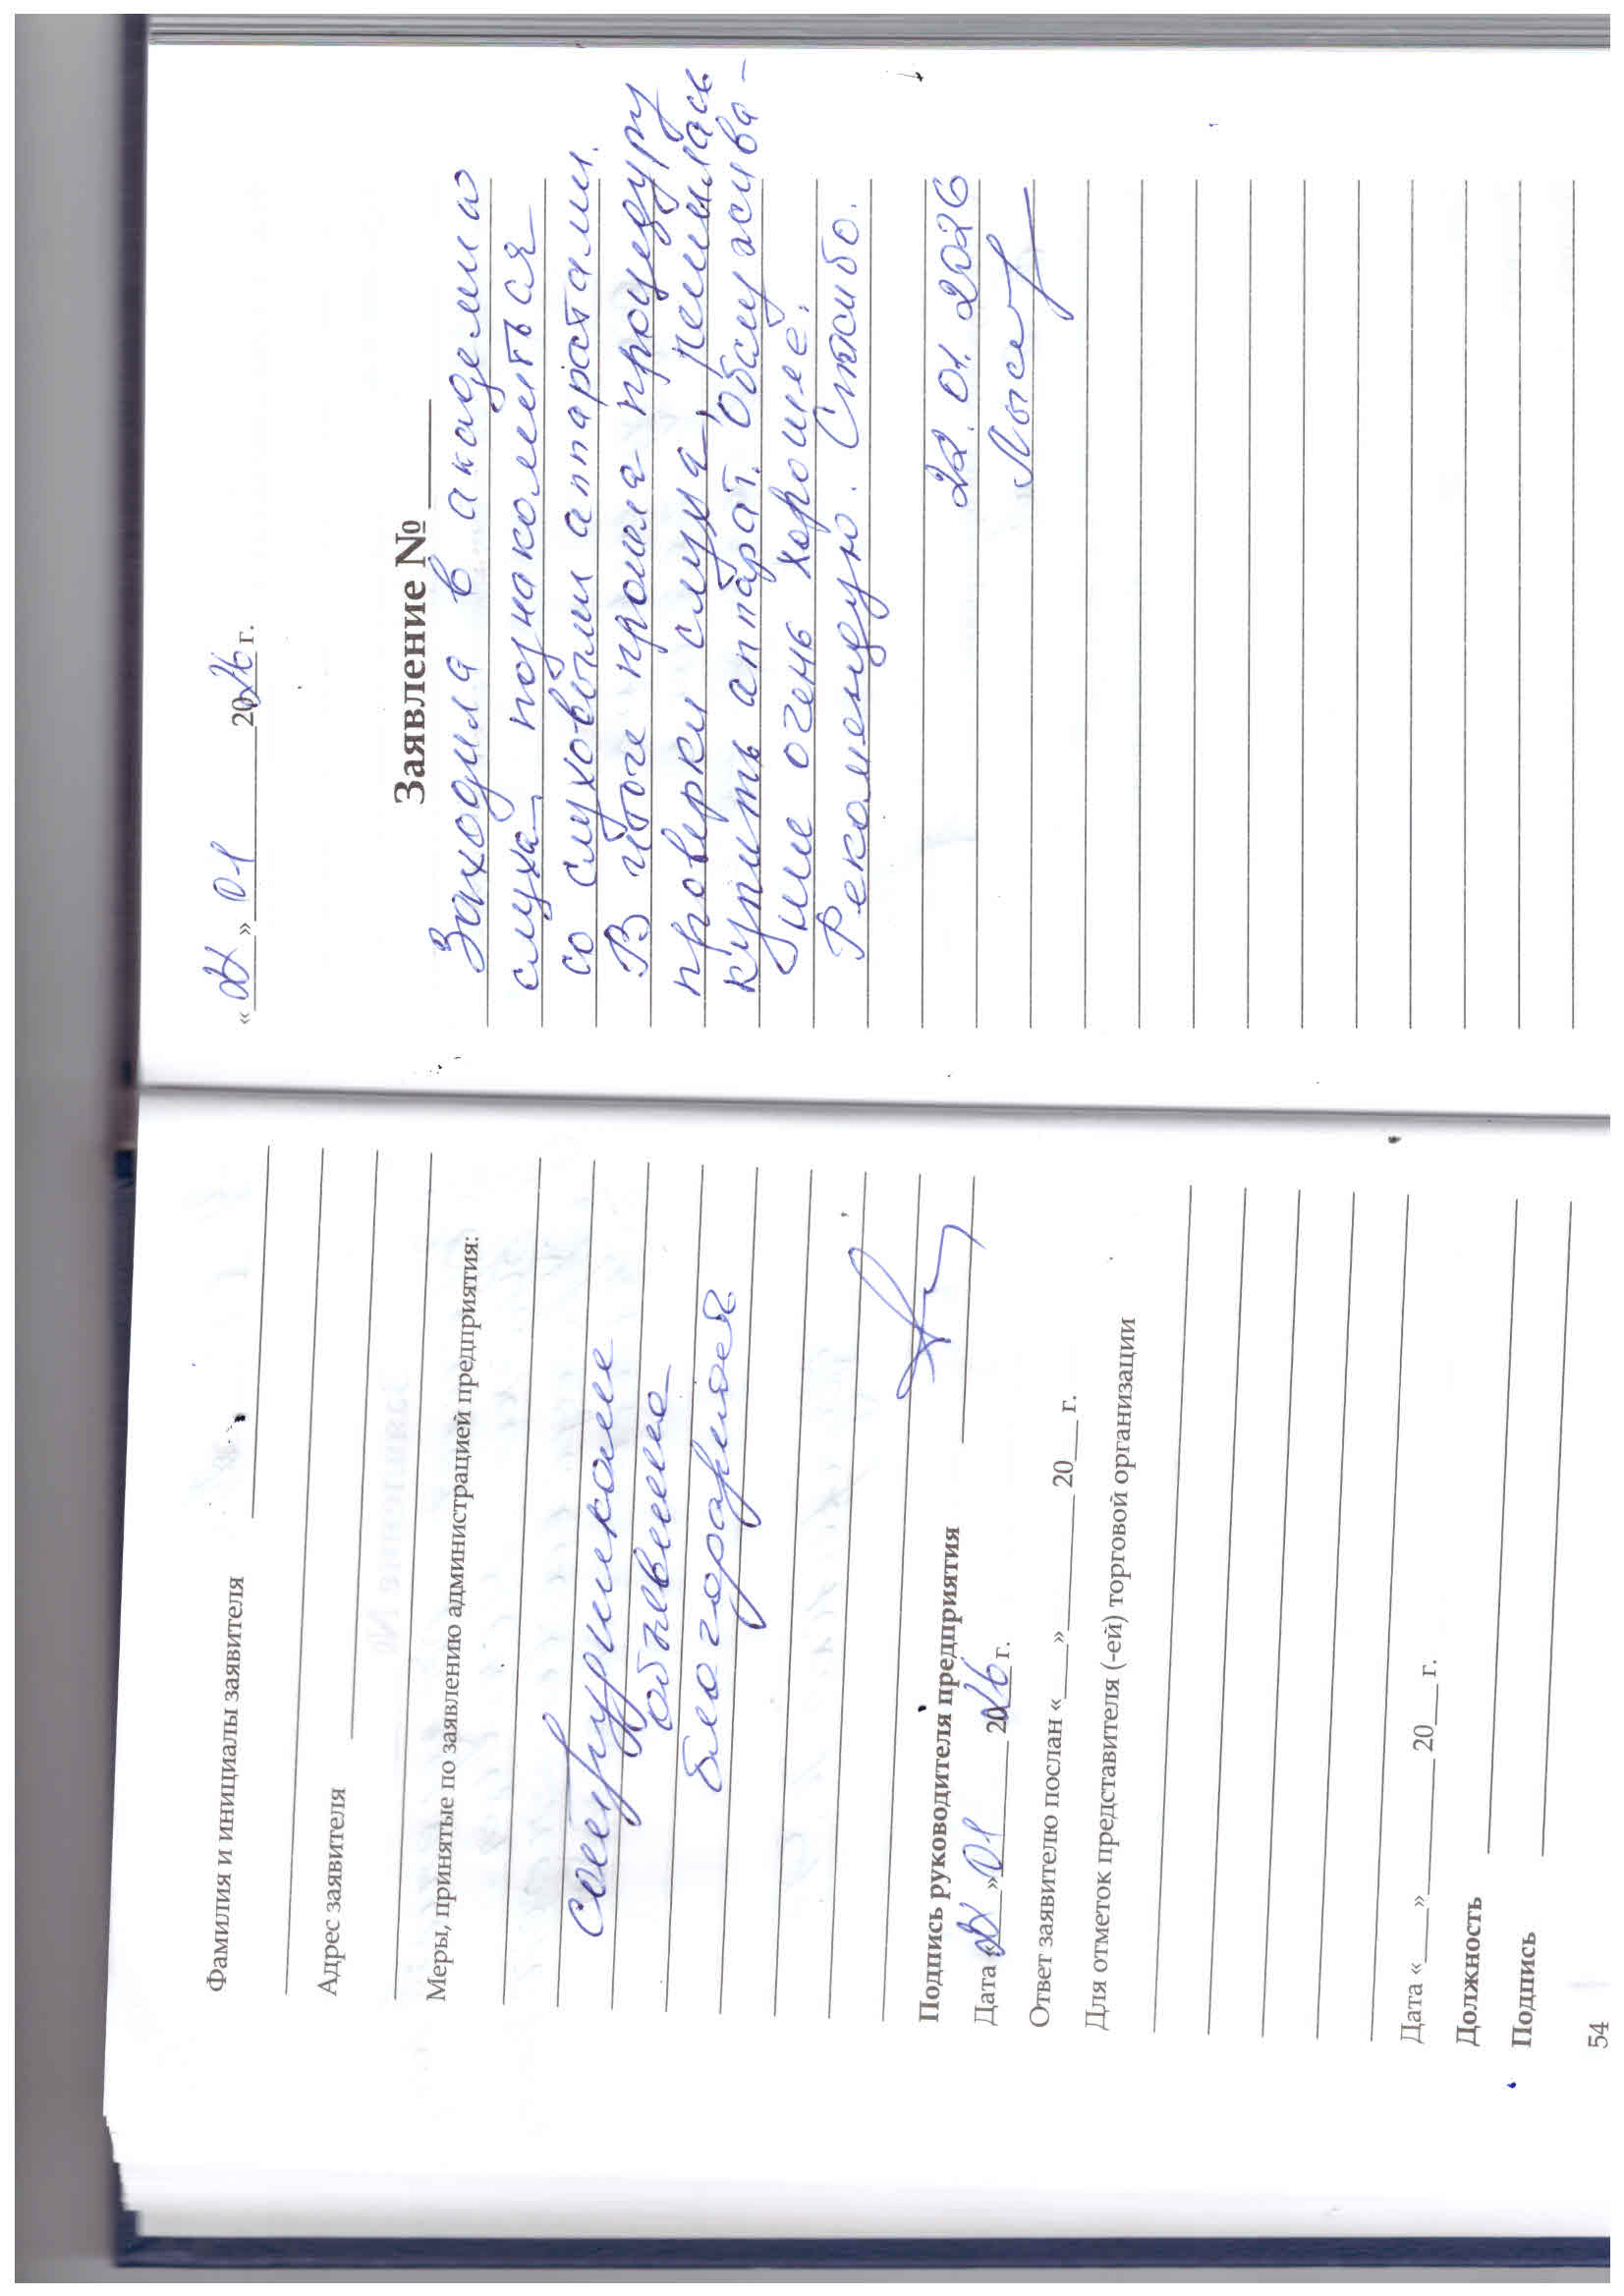 Фамилия и инициалы заявителя
Адрес заявителя
Меры, принятые по заявлению администрацией предприятия:
сотрудникам
объявлена
благодарность
Подпись руководителя предприятия
Дата «22» 01 2026 г.
Ответ заявителю послан «___» 20__ г.
Для отметок представителя (-ей) торговой организации
Дата «___» 20__ г.
Должность
Подпись
54
«22» 01 2026 г.
Заявление №
Заходила в академию
слуха познакомиться
со слуховыми аппаратами.
В итоге прошла процедуру
проверки слуха, решилась
купить аппарат. Обслужива-
ние очень хорошее.
Рекомендую. Спасибо.
22.01.2026